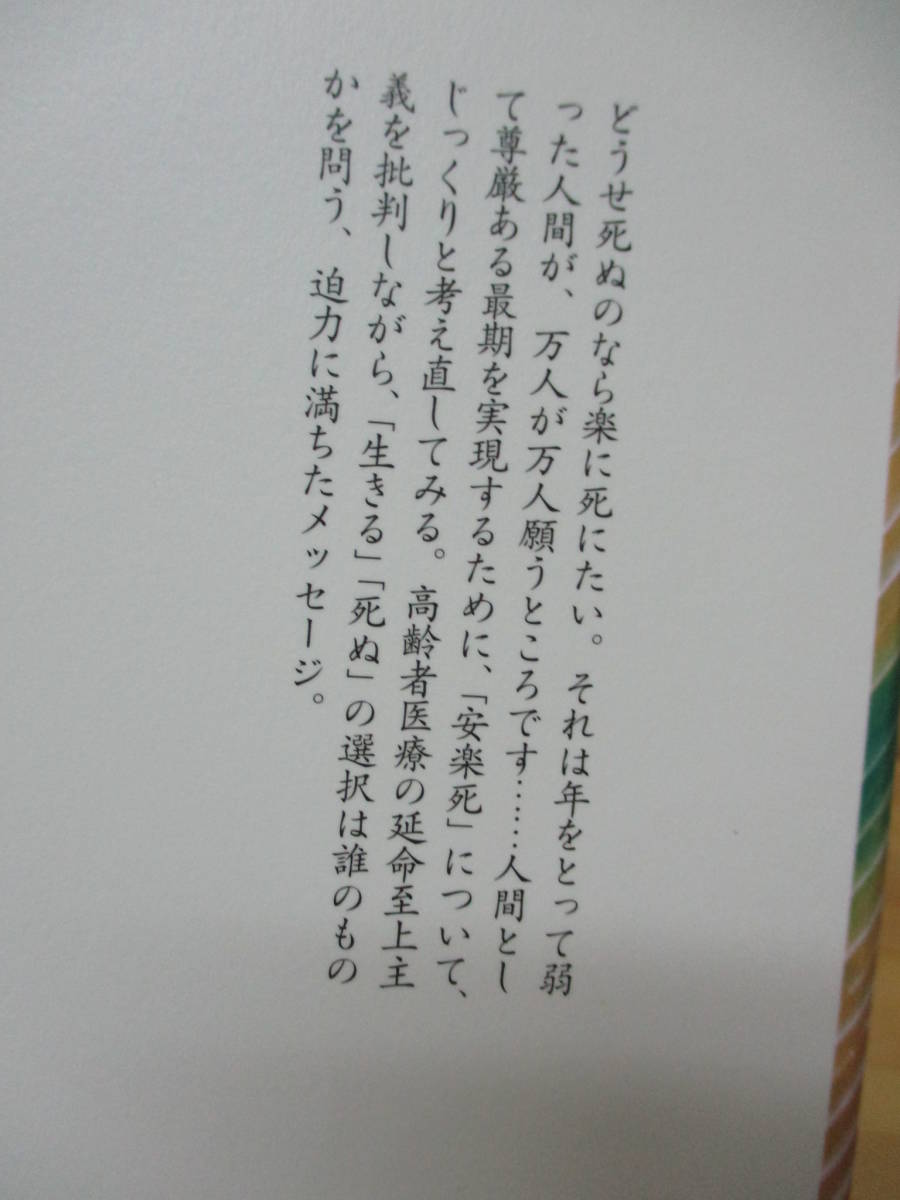 どうせ死ぬのなら楽に死にたい。それは年をとって弱
った人間が、万人が万人願うところです……人間とし
て尊厳ある最期を実現するために、「安楽死」について、
じっくりと考え直してみる。高齢者医療の延命至上主
義を批判しながら、「生きる」「死ぬ」の選択は誰のもの
かを問う、迫力に満ちたメッセージ。